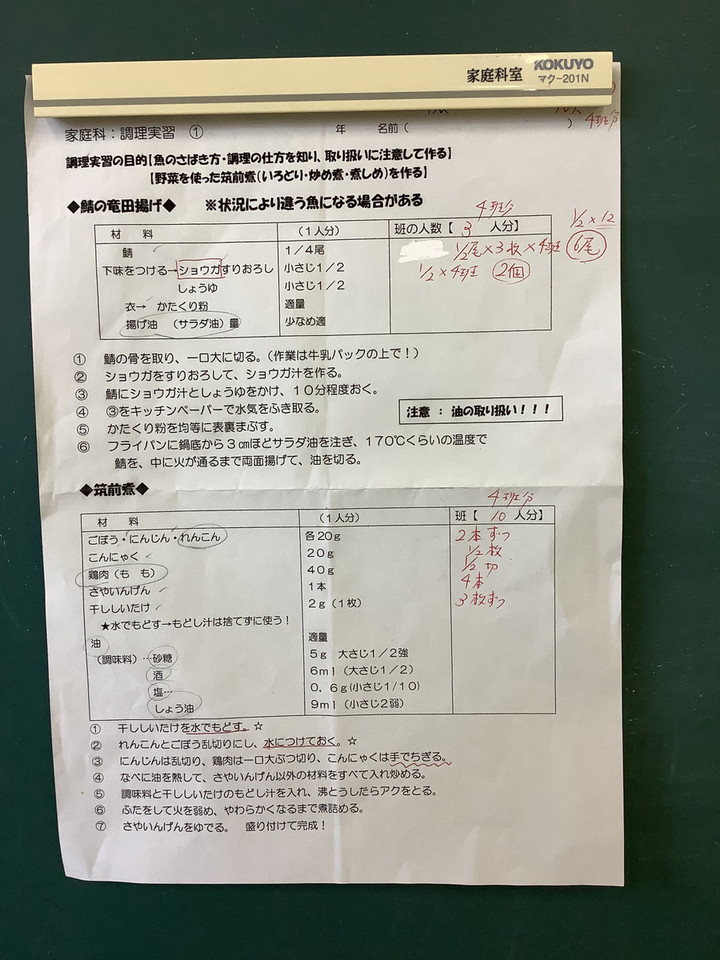 家庭科室 KOKUYO
マクー201N
家庭科：調理実習 ① 年 名前（ ） 4班分
調理実習の目的【魚のさばき方・調理の仕方を知り、取り扱いに注意して作る】
【野菜を使った筑前煮（いろどり・炒め煮・煮しめ）を作る】
◆鯖の竜田揚げ◆ ※状況により違う魚になる場合がある
4班分
1/2×12
材 料 （1人分） 班の人数【 3 人分】
鯖 1／4尾 1/2尾×3枚×4班 6尾
下味をつける→ショウガすりおろし 小さじ1／2 1/2×4班 2個
しょうゆ 小さじ1／2
衣→ かたくり粉 適量
揚げ油 （サラダ油）量 少なめ適
① 鯖の骨を取り、一口大に切る。（作業は牛乳パックの上で！）
② ショウガをすりおろして、ショウガ汁を作る。
③ 鯖にショウガ汁としょうゆをかけ、10分程度おく。
④ ③をキッチンペーパーで水気をふき取る。
注意 ： 油の取り扱い！！！
⑤ かたくり粉を均等に表裏まぶす。
⑥ フライパンに鍋底から3㎝ほどサラダ油を注ぎ、170℃くらいの温度で
鯖を、中に火が通るまで両面揚げて、油を切る。
◆筑前煮◆
4班分
材 料 （1人分） 班【 10 人分】
ごぼう・にんじん・れんこん 各20g 2本ずつ
こんにゃく 20g 1/2枚
鶏肉（も も） 40g 1/2切
さやいんげん 1本 4本
干ししいたけ 2g（1枚） 3枚ずつ
★水でもどす→もどし汁は捨てずに使う！
油 適量
（調味料）…砂糖 5g 大さじ1／2強
酒 6ml（大さじ1／2）
塩… 0．6g（小さじ1／10）
しょう油 9ml（小さじ2弱）
① 干ししいたけを水でもどす。☆
② れんこんとごぼう乱切りにし、水につけておく。☆
③ にんじんは乱切り、鶏肉は一口大ぶつ切り、こんにゃくは手でちぎる。
④ なべに油を熱して、さやいんげん以外の材料をすべて入れ炒める。
⑤ 調味料と干ししいたけのもどし汁を入れ、沸とうしたらアクをとる。
⑥ ふたをして火を弱め、やわらかくなるまで煮詰める。
⑦ さやいんげんをゆでる。 盛り付けて完成！